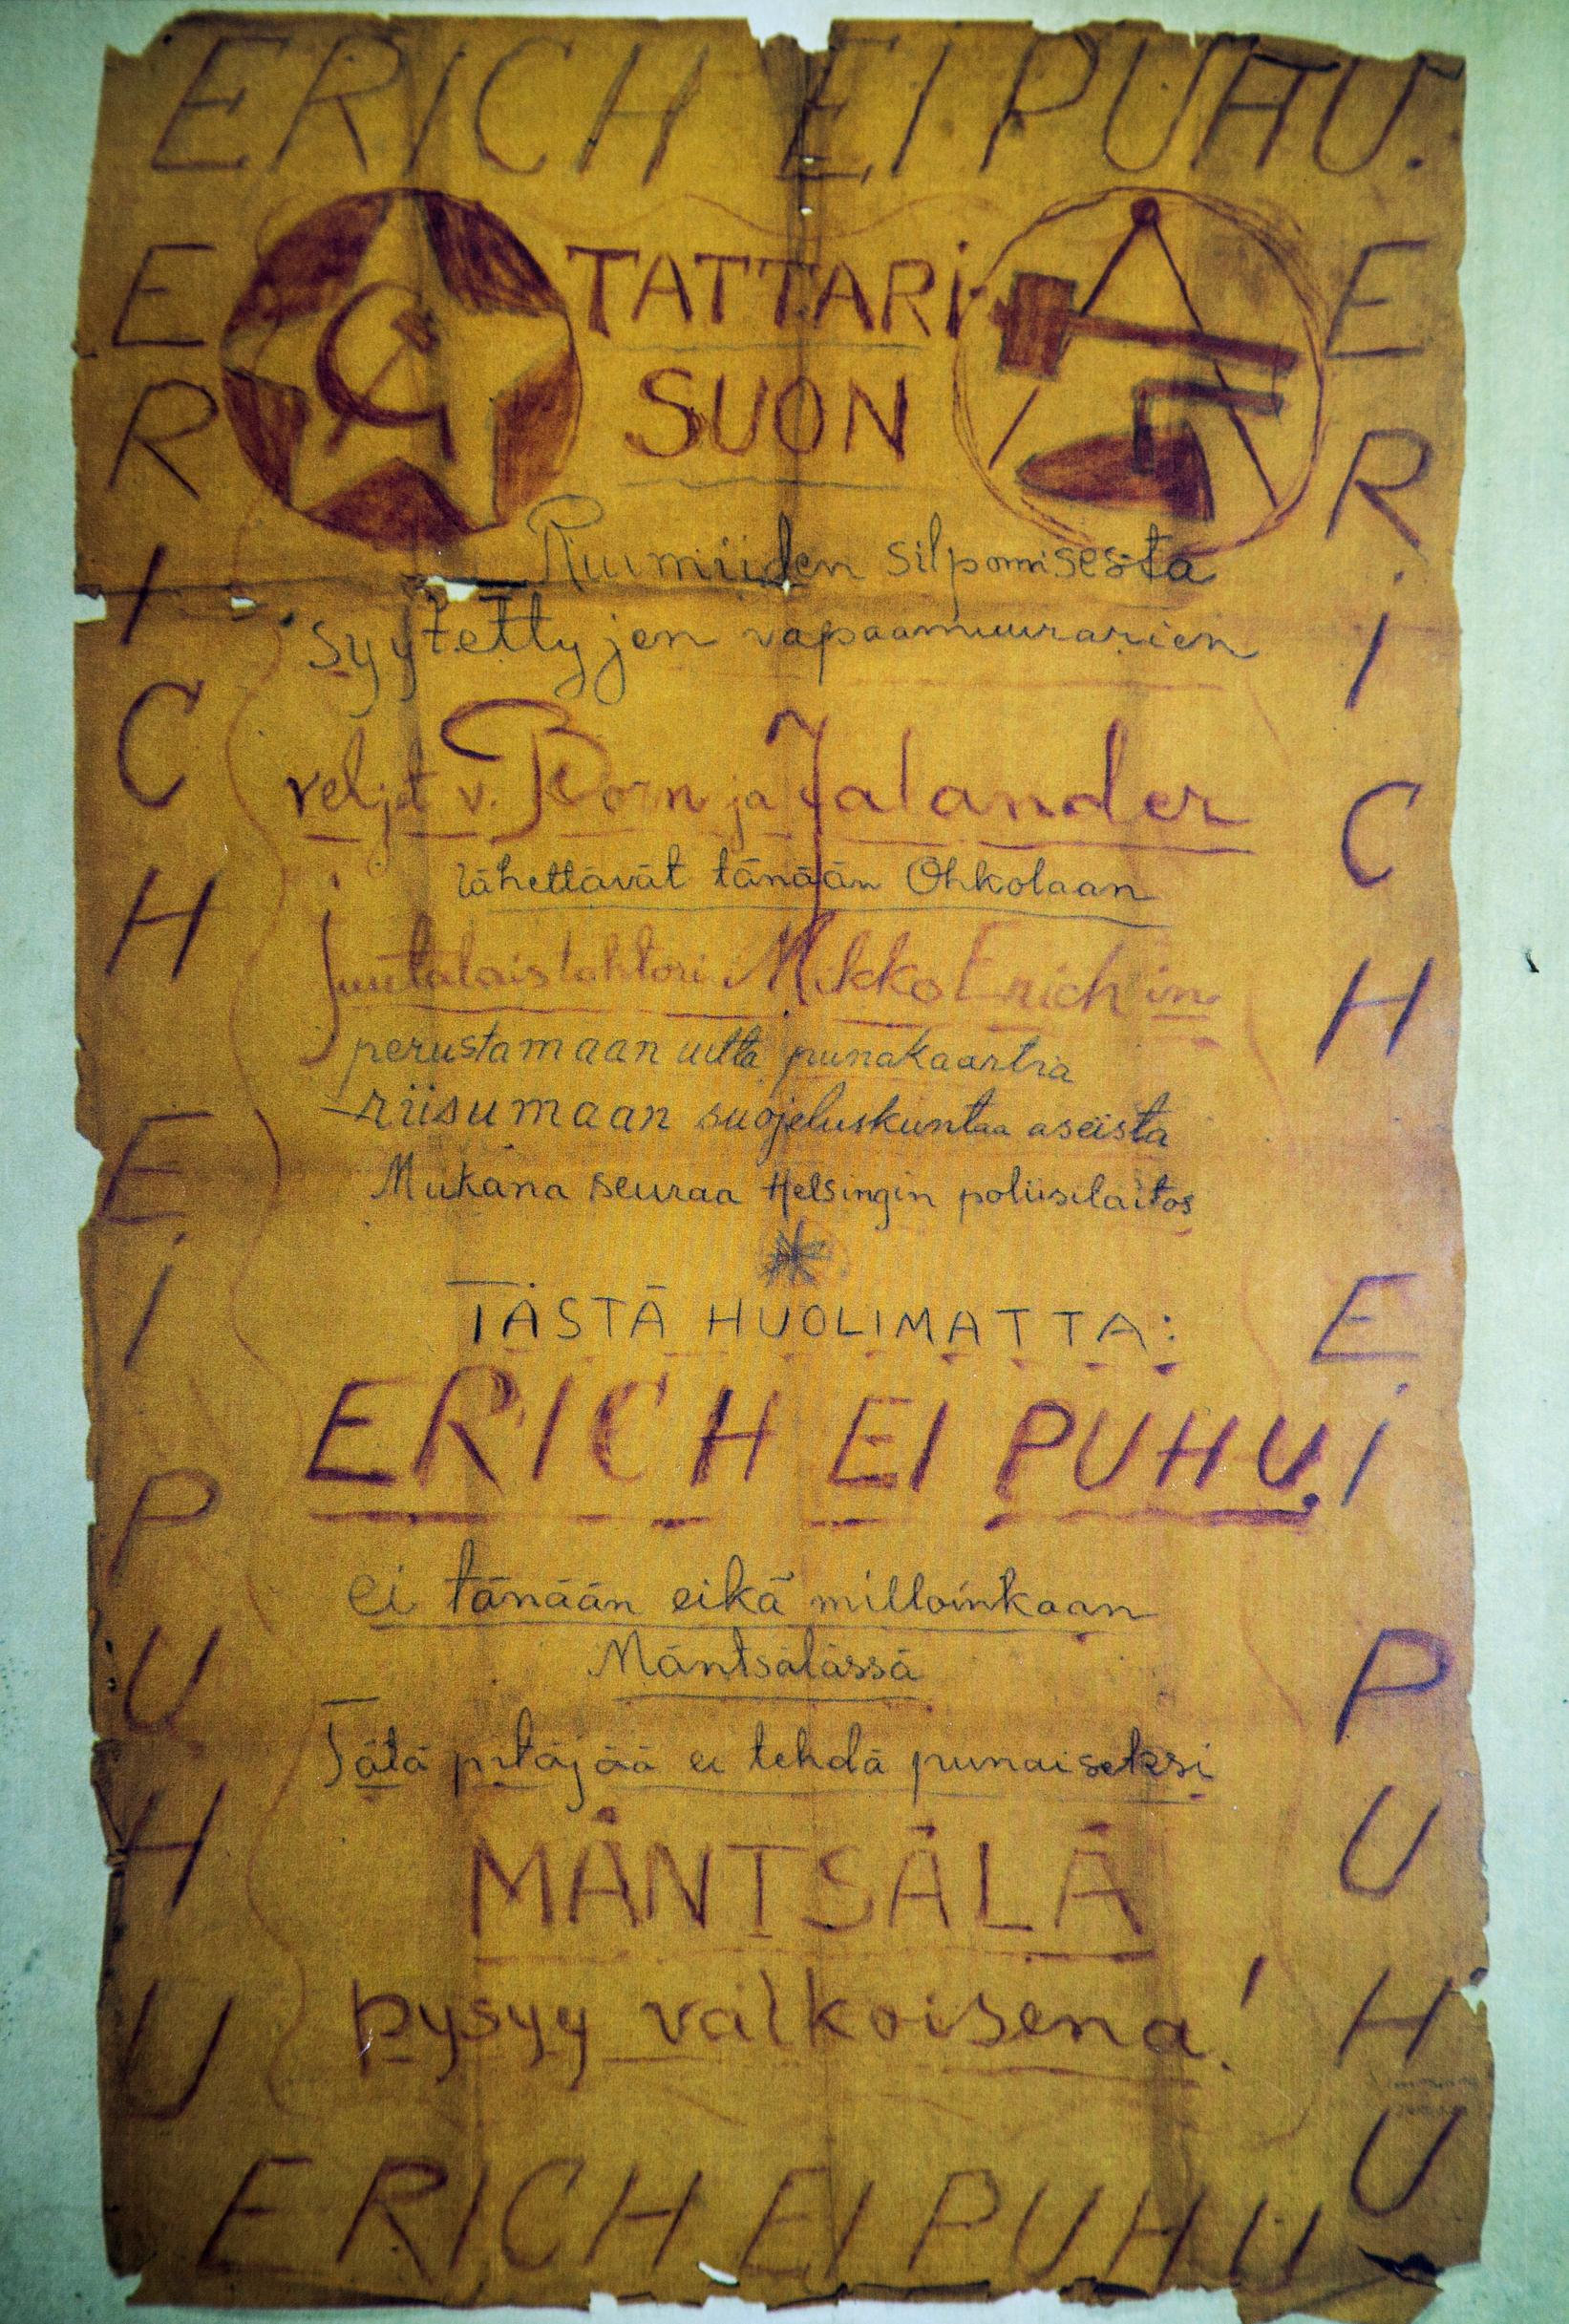 ERICH EI PUHU.
TATTARi
SUON
Ruumiiden silpomisesta
syytettyjen vapaamuurarien
veljet v. Born ja Jalander
lähettävät tänään Ohkolaan
juutalaistohtori Mikko Erich'in
perustamaan uutta punakaartia
riisumaan suojeluskuntaa aseista
Mukana seuraa Helsingin poliisilaitos
TÄSTÄ HUOLIMATTA:
ERICH EI PUHU.
ei tänään eikä milloinkaan
Mäntsälässä
Tätä pitäjää ei tehdä punaiseksi
MÄNTSÄLÄ
pysyy valkoisena!
ERICH EI PUHU
ERICH EI PUHU
ERiCH Ei PUHU